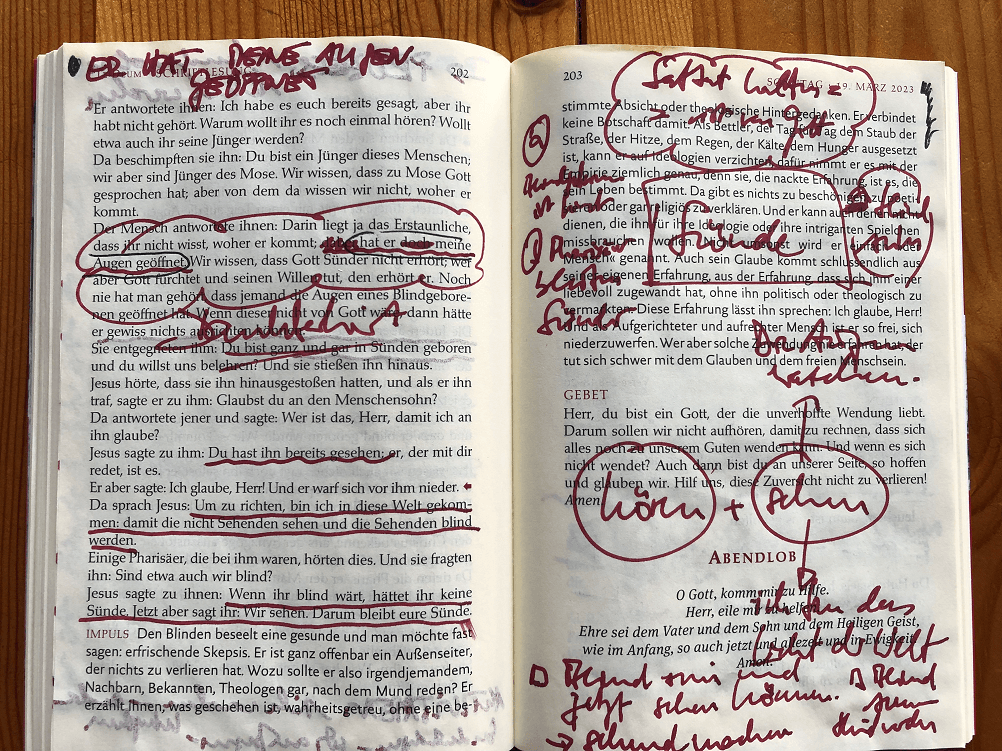 ER HAT DEINE AUGEN
GEÖFFNET
202
Er antwortete ihnen: Ich habe es euch bereits gesagt, aber ihr
habt nicht gehört. Warum wollt ihr es noch einmal hören? Wollt
etwa auch ihr seine Jünger werden?
Da beschimpften sie ihn: Du bist ein Jünger dieses Menschen;
wir aber sind Jünger des Mose. Wir wissen, dass zu Mose Gott
gesprochen hat; aber von dem da wissen wir nicht, woher er
kommt.
Der Mensch antwortete ihnen: Darin liegt ja das Erstaunliche,
dass ihr nicht wisst, woher er kommt; dabei hat er doch meine
Augen geöffnet. Wir wissen, dass Gott Sünder nicht erhört; wer
aber Gott fürchtet und seinen Willen tut, den erhört er. Noch
nie hat man gehört, dass jemand die Augen eines Blindgebore-
nen geöffnet hat. Wenn dieser nicht von Gott wäre, dann hätte
er gewiss nichts ausrichten können.
Sie entgegneten ihm: Du bist ganz und gar in Sünden geboren
und du willst uns belehren? Und sie stießen ihn hinaus.
Jesus hörte, dass sie ihn hinausgestoßen hatten, und als er ihn
traf, sagte er zu ihm: Glaubst du an den Menschensohn?
Da antwortete jener und sagte: Wer ist das, Herr, damit ich an
ihn glaube?
Jesus sagte zu ihm: Du hast ihn bereits gesehen; er, der mit dir
redet, ist es.
Er aber sagte: Ich glaube, Herr! Und er warf sich vor ihm nieder.
Da sprach Jesus: Um zu richten, bin ich in diese Welt gekom-
men: damit die nicht Sehenden sehen und die Sehenden blind
werden.
Einige Pharisäer, die bei ihm waren, hörten dies. Und sie fragten
ihn: Sind etwa auch wir blind?
Jesus sagte zu ihnen: Wenn ihr blind wärt, hättet ihr keine
Sünde. Jetzt aber sagt ihr: Wir sehen. Darum bleibt eure Sünde.
IMPULS Den Blinden beseelt eine gesunde und man möchte fast
sagen: erfrischende Skepsis. Er ist ganz offenbar ein Außenseiter,
der nichts zu verlieren hat. Wozu sollte er also irgendjemandem,
Nachbarn, Bekannten, Theologen gar, nach dem Mund reden? Er
erzählt ihnen, was geschehen ist, wahrheitsgetreu, ohne eine be-
203
SONNTAG 19. MÄRZ 2023
stimmte Absicht oder theologische Hintergedanken. Er verbindet
keine Botschaft damit. Als Bettler, der Tag für Tag dem Staub der
Straße, der Hitze, dem Regen, der Kälte, dem Hunger ausgesetzt
ist, kann er auf Ideologien verzichten, dafür nimmt er es mit der
Empirie ziemlich genau, denn sie, die nackte Erfahrung, ist es, die
sein Leben bestimmt. Da gibt es nichts zu beschönigen, zu poeti-
sieren oder gar religiös zu verklären. Und er kann auch denen nicht
dienen, die ihn für ihre Ideologie oder ihre intriganten Spielchen
missbrauchen wollen. Nicht umsonst wird er einfach »
Mensch« genannt. Auch sein Glaube kommt schlussendlich aus
seiner eigenen Erfahrung, aus der Erfahrung, dass sich ihm einer
liebevoll zugewandt hat, ohne ihn politisch oder theologisch zu
vermarkten. Diese Erfahrung lässt ihn sprechen: Ich glaube, Herr!
Und als Aufgerichteter und aufrechter Mensch ist er so frei, sich
niederzuwerfen. Wer aber solche Zuwendung nie erfahren hat, der
tut sich schwer mit dem Glauben und dem freien Menschsein.
Sünde
GEBET
Herr, du bist ein Gott, der die unverhoffte Wendung liebt.
Darum sollen wir nicht aufhören, damit zu rechnen, dass sich
alles noch zu unserem Guten wenden kann. Und wenn es sich
nicht wendet? Auch dann bist du an unserer Seite, so hoffen
und glauben wir. Hilf uns, diese Zuversicht nicht zu verlieren!
Amen.
hören + sehen
ABENDLOB
O Gott, komm mir zu Hilfe.
Herr, eile mir zu helfen.
Ehre sei dem Vater und dem Sohn und dem Heiligen Geist,
wie im Anfang, so auch jetzt und allezeit und in Ewigkeit.
Amen.
jetzt sehen können.
→ sehend machen